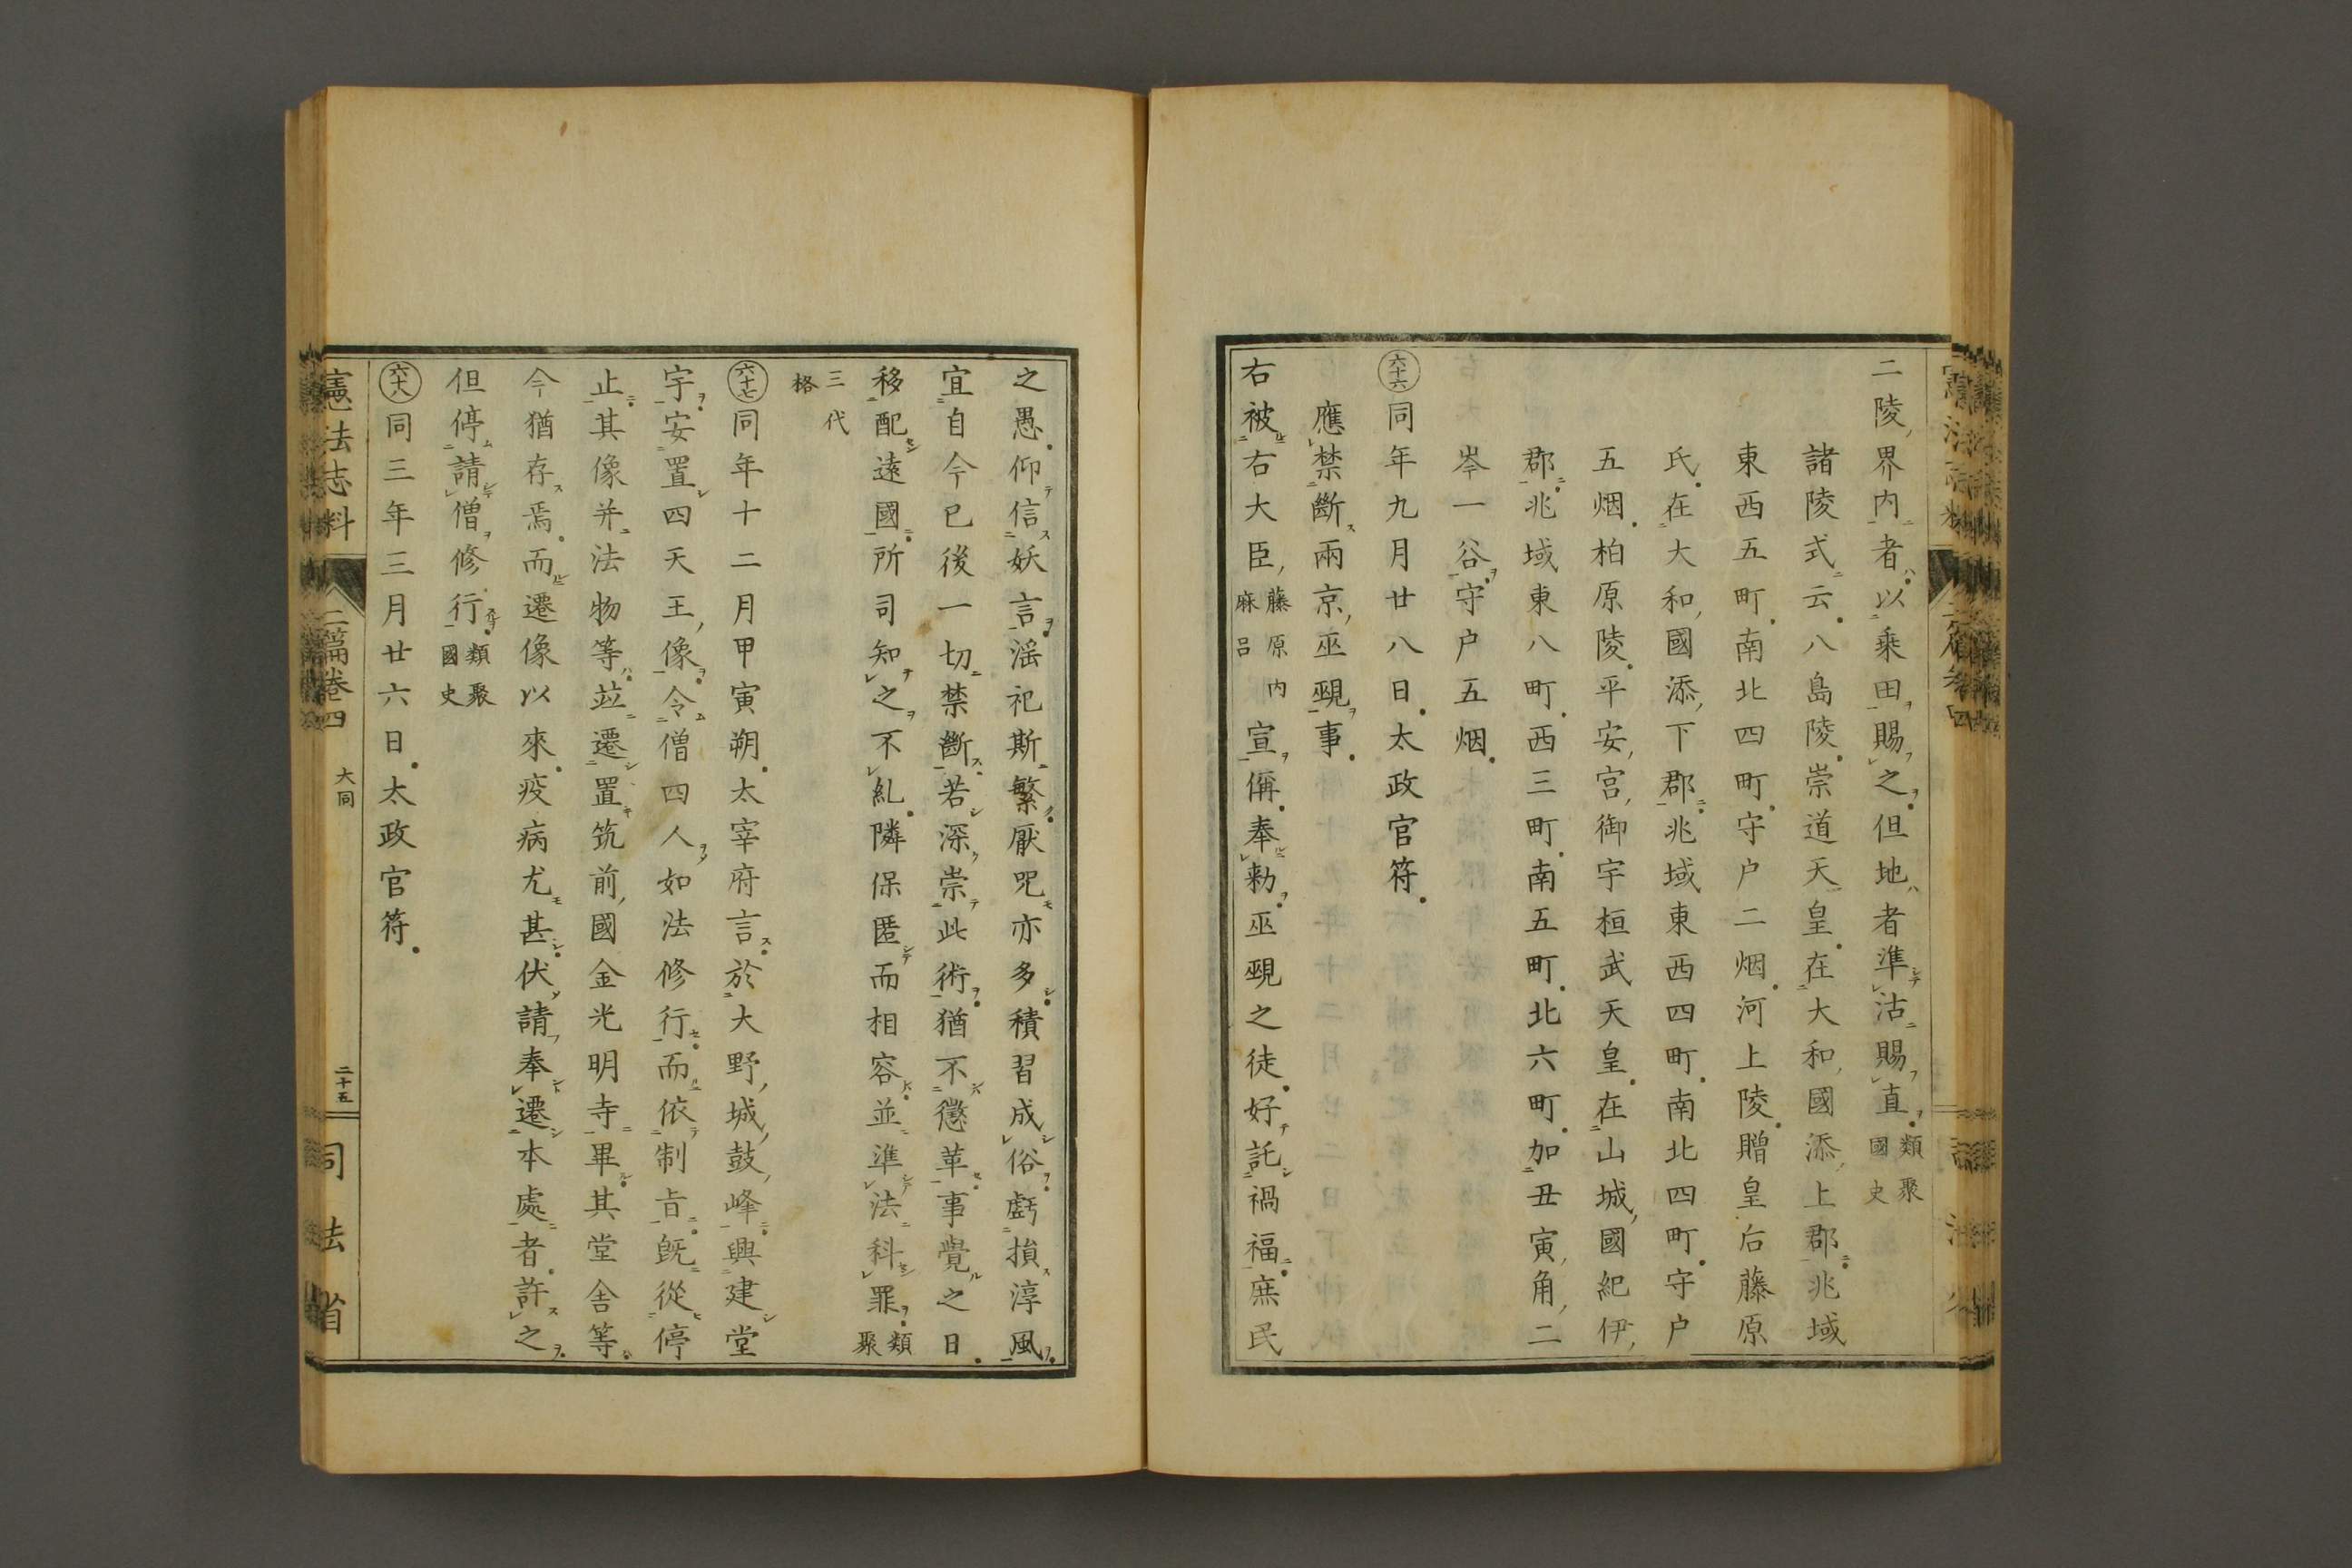 二陵界内者以乗田賜之但地者準沽賜直類聚國史
諸陵式云八島陵崇道天皇在大和國添上郡兆域
東西五町南北四町守户二烟河上陵贈皇后藤原
氏在大和國添下郡兆域東西四町南北四町守户
五烟柏原陵平安宮御宇桓武天皇在山城國紀伊
郡兆域東八町西三町南五町北六町加丑寅角二
岑一谷守户五烟
六十六同年九月廿八日太政官符
應禁斷兩京巫覡事
右被右大臣藤原内麻呂宣偁奉勅巫覡之徒好託禍福庶民
之愚仰信妖言滛祀斯繁厭咒亦多積習成俗虧損淳風
宜自今已後一切禁斷若深崇此術猶不懲革事覺之日
移配遠國所司知之不糺隣保匿而相容並準法科罪類聚
三代格
六十七同年十二月甲寅朔太宰府言於大野城鼓峰興建堂
宇安置四天王像令僧四人如法修行而依制旨旣從停
止其像并法物等竝遷置筑前國金光明寺畢其堂舎等
今猶存焉而遷像以來疫病尤甚伏請奉遷本處者許之
但停請僧修行類聚國史
六十八同三年三月廿六日太政官符
憲法志料 二篇卷四 大同 二十五 司法省